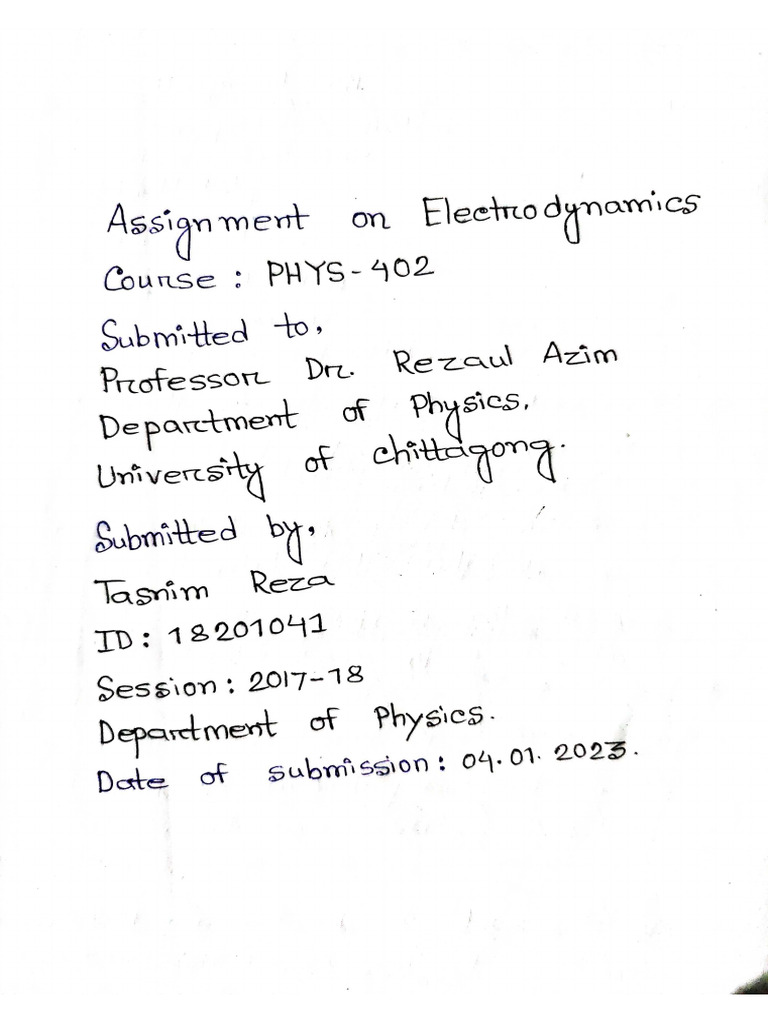 Assignment on Electrodynamics
Course : PHYS-402
Submitted to,
Professor Dr. Rezaul Azim
Department of Physics,
University of Chittagong.
Submitted by,
Tasnim Reza
ID : 18201041
Session : 2017-18
Department of Physics.
Date of submission : 04.01.2023.